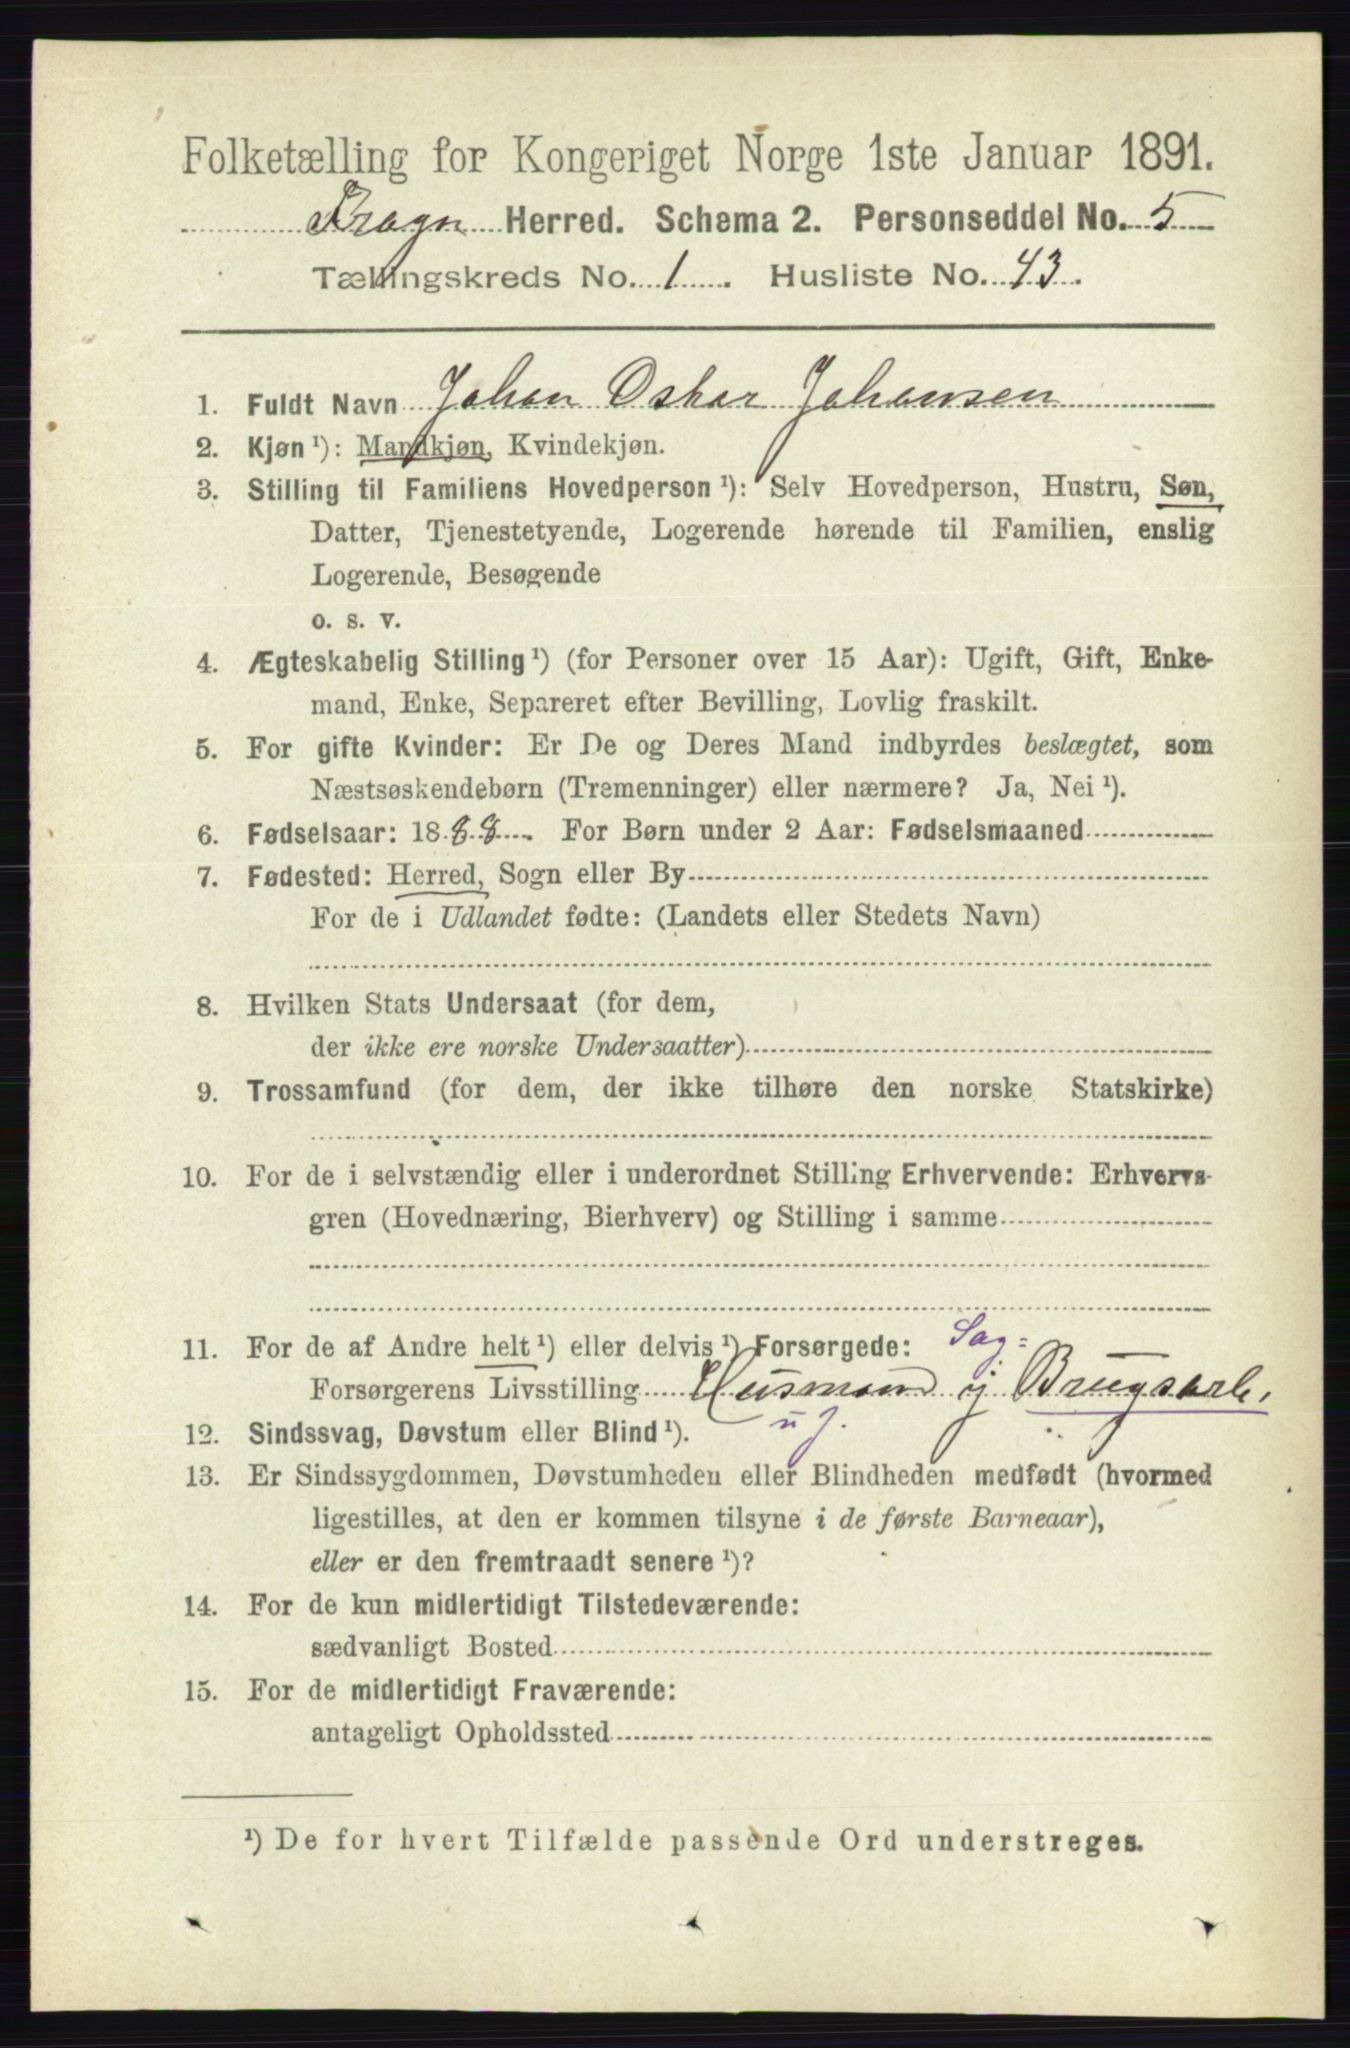 Folketælling for Kongeriget Norge 1ste Januar 1891.
Frogn Herred. Schema 2. Personseddel No. 5
Tællingskreds No. 1. Husliste No. 43.
1. Fuldt Navn Johan Oskar Johansen
2. Kjøn ¹): Mandkjøn, Kvindekjøn.
3. Stilling til Familiens Hovedperson ¹): Selv Hovedperson, Hustru, Søn,
Datter, Tjenestetyende, Logerende hørende til Familien, enslig
Logerende, Besøgende
o. s. v.
4. Ægteskabelig Stilling ¹) (for Personer over 15 Aar): Ugift, Gift, Enke-
mand, Enke, Separeret efter Bevilling, Lovlig fraskilt.
5. For gifte Kvinder: Er De og Deres Mand indbyrdes beslægtet, som
Næstsøskendebørn (Tremenninger) eller nærmere? Ja, Nei ¹).
6. Fødselsaar: 1888. For Børn under 2 Aar: Fødselsmaaned
7. Fødested: Herred, Sogn eller By
For de i Udlandet fødte: (Landets eller Stedets Navn)
8. Hvilken Stats Undersaat (for dem,
der ikke ere norske Undersaatter)
9. Trossamfund (for dem, der ikke tilhøre den norske Statskirke)
10. For de i selvstændig eller i underordnet Stilling Erhvervende: Erhvervs-
gren (Hovednæring, Bierhverv) og Stilling i samme
11. For de af Andre helt ¹) eller delvis ¹) Forsørgede: Sag=
Forsørgerens Livsstilling Husmand Brugsarb.
12. Sindssvag, Døvstum eller Blind ¹). u j.
13. Er Sindssygdommen, Døvstumheden eller Blindheden medfødt (hvormed
ligestilles, at den er kommen tilsyne i de første Barneaar),
eller er den fremtraadt senere ¹)?
14. For de kun midlertidigt Tilstedeværende:
sædvanligt Bosted
15. For de midlertidigt Fraværende:
antageligt Opholdssted
¹) De for hvert Tilfælde passende Ord understreges.